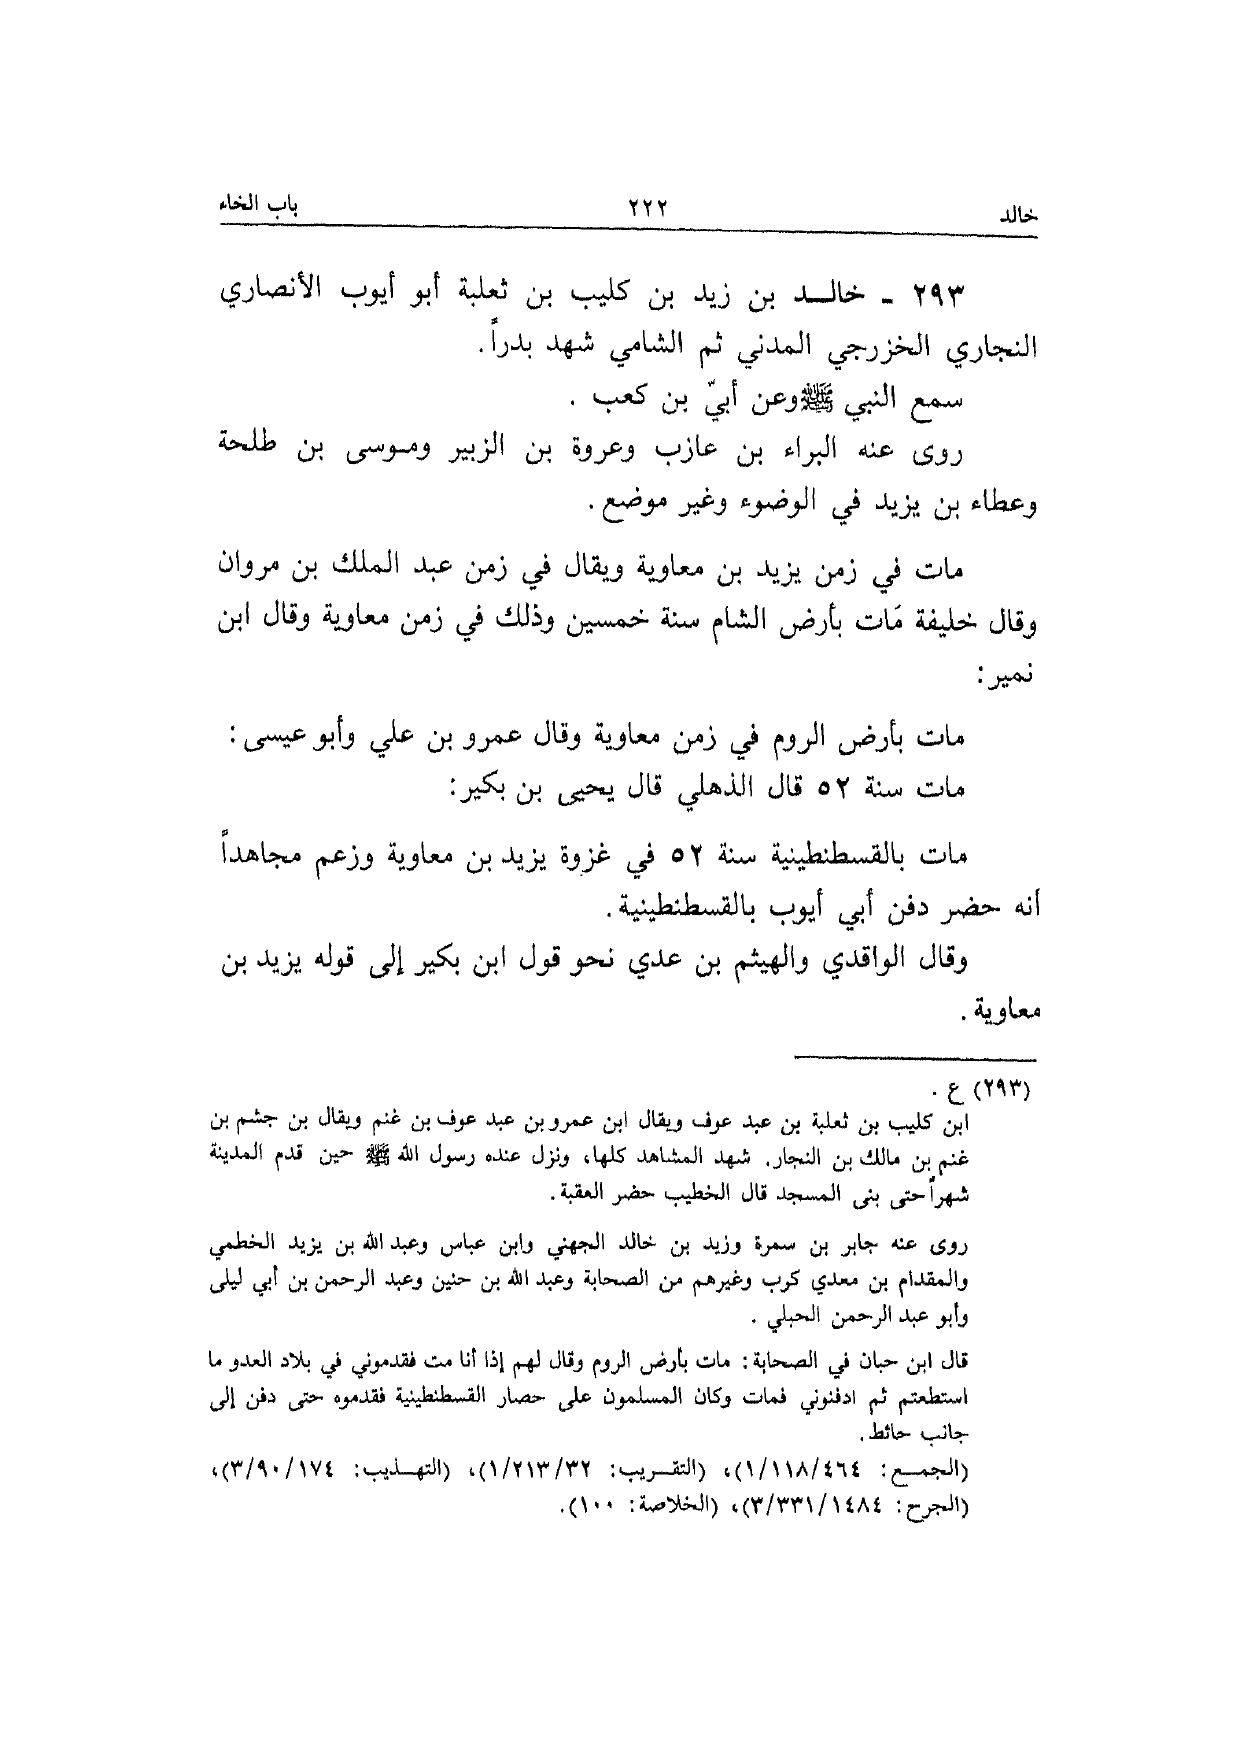 خالد ٢٢٢ باب الخاء
٢٩٣ - خالـد بن زيد بن كليب بن ثعلبة أبو أيوب الأنصاري
النجاري الخزرجي المدني ثم الشامي شهد بدراً.
سمع النبي ﷺ وعن أبيّ بن كعب .
روى عنه البراء بن عازب وعروة بن الزبير وموسى بن طلحة
وعطاء بن يزيد في الوضوء وغير موضع.
مات في زمن يزيد بن معاوية ويقال في زمن عبد الملك بن مروان
وقال خليفة مَات بأرض الشام سنة خمسين وذلك في زمن معاوية وقال ابن
نمير:
مات بأرض الروم في زمن معاوية وقال عمرو بن علي وأبو عيسى:
مات سنة ٥٢ قال الذهلي قال يحيى بن بكير:
مات بالقسطنطينية سنة ٥٢ في غزوة يزيد بن معاوية وزعم مجاهداً
أنه حضر دفن أبي أيوب بالقسطنطينية.
وقال الواقدي والهيثم بن عدي نحو قول ابن بكير إلى قوله يزيد بن
معاوية .
(٢٩٣) ع .
ابن كليب بن ثعلبة بن عبد عوف ويقال ابن عمرو بن عبد عوف بن غنم ويقال بن جشم بن
غنم بن مالك بن النجار. شهد المشاهد كلها، ونزل عنده رسول الله ﷺ حين قدم المدينة
شهراً حتى بنى المسجد قال الخطيب حضر العقبة.
روى عنه جابر بن سمرة وزيد بن خالد الجهني وابن عباس وعبد الله بن يزيد الخطمي
والمقدام بن معدي كرب وغيرهم من الصحابة وعبد الله بن حنين وعبد الرحمن بن أبي ليلى
وأبو عبد الرحمن الحبلي .
قال ابن حبان في الصحابة: مات بأرض الروم وقال لهم إذا أنا مت فقدموني في بلاد العدو ما
استطعتم ثم ادفنوني فمات وكان المسلمون على حصار القسطنطينية فقدموه حتى دفن إلى
جانب حائط.
(الجمـع: ١/١١٨/٤٦٤)، (التقـريب: ١/٢١٣/٣٢)، (التهـذيب: ٣/٩٠/١٧٤)،
(الجرح: ٣/٣٣١/١٤٨٤)، (الخلاصة: ١٠٠).